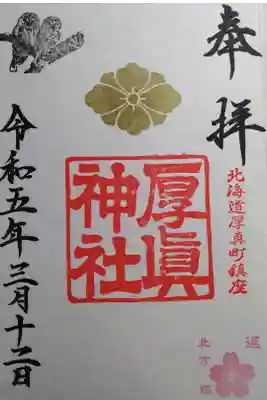 奉拝
北海道厚真町鎮座
厚眞
神社
令和五年三月十二日
北方